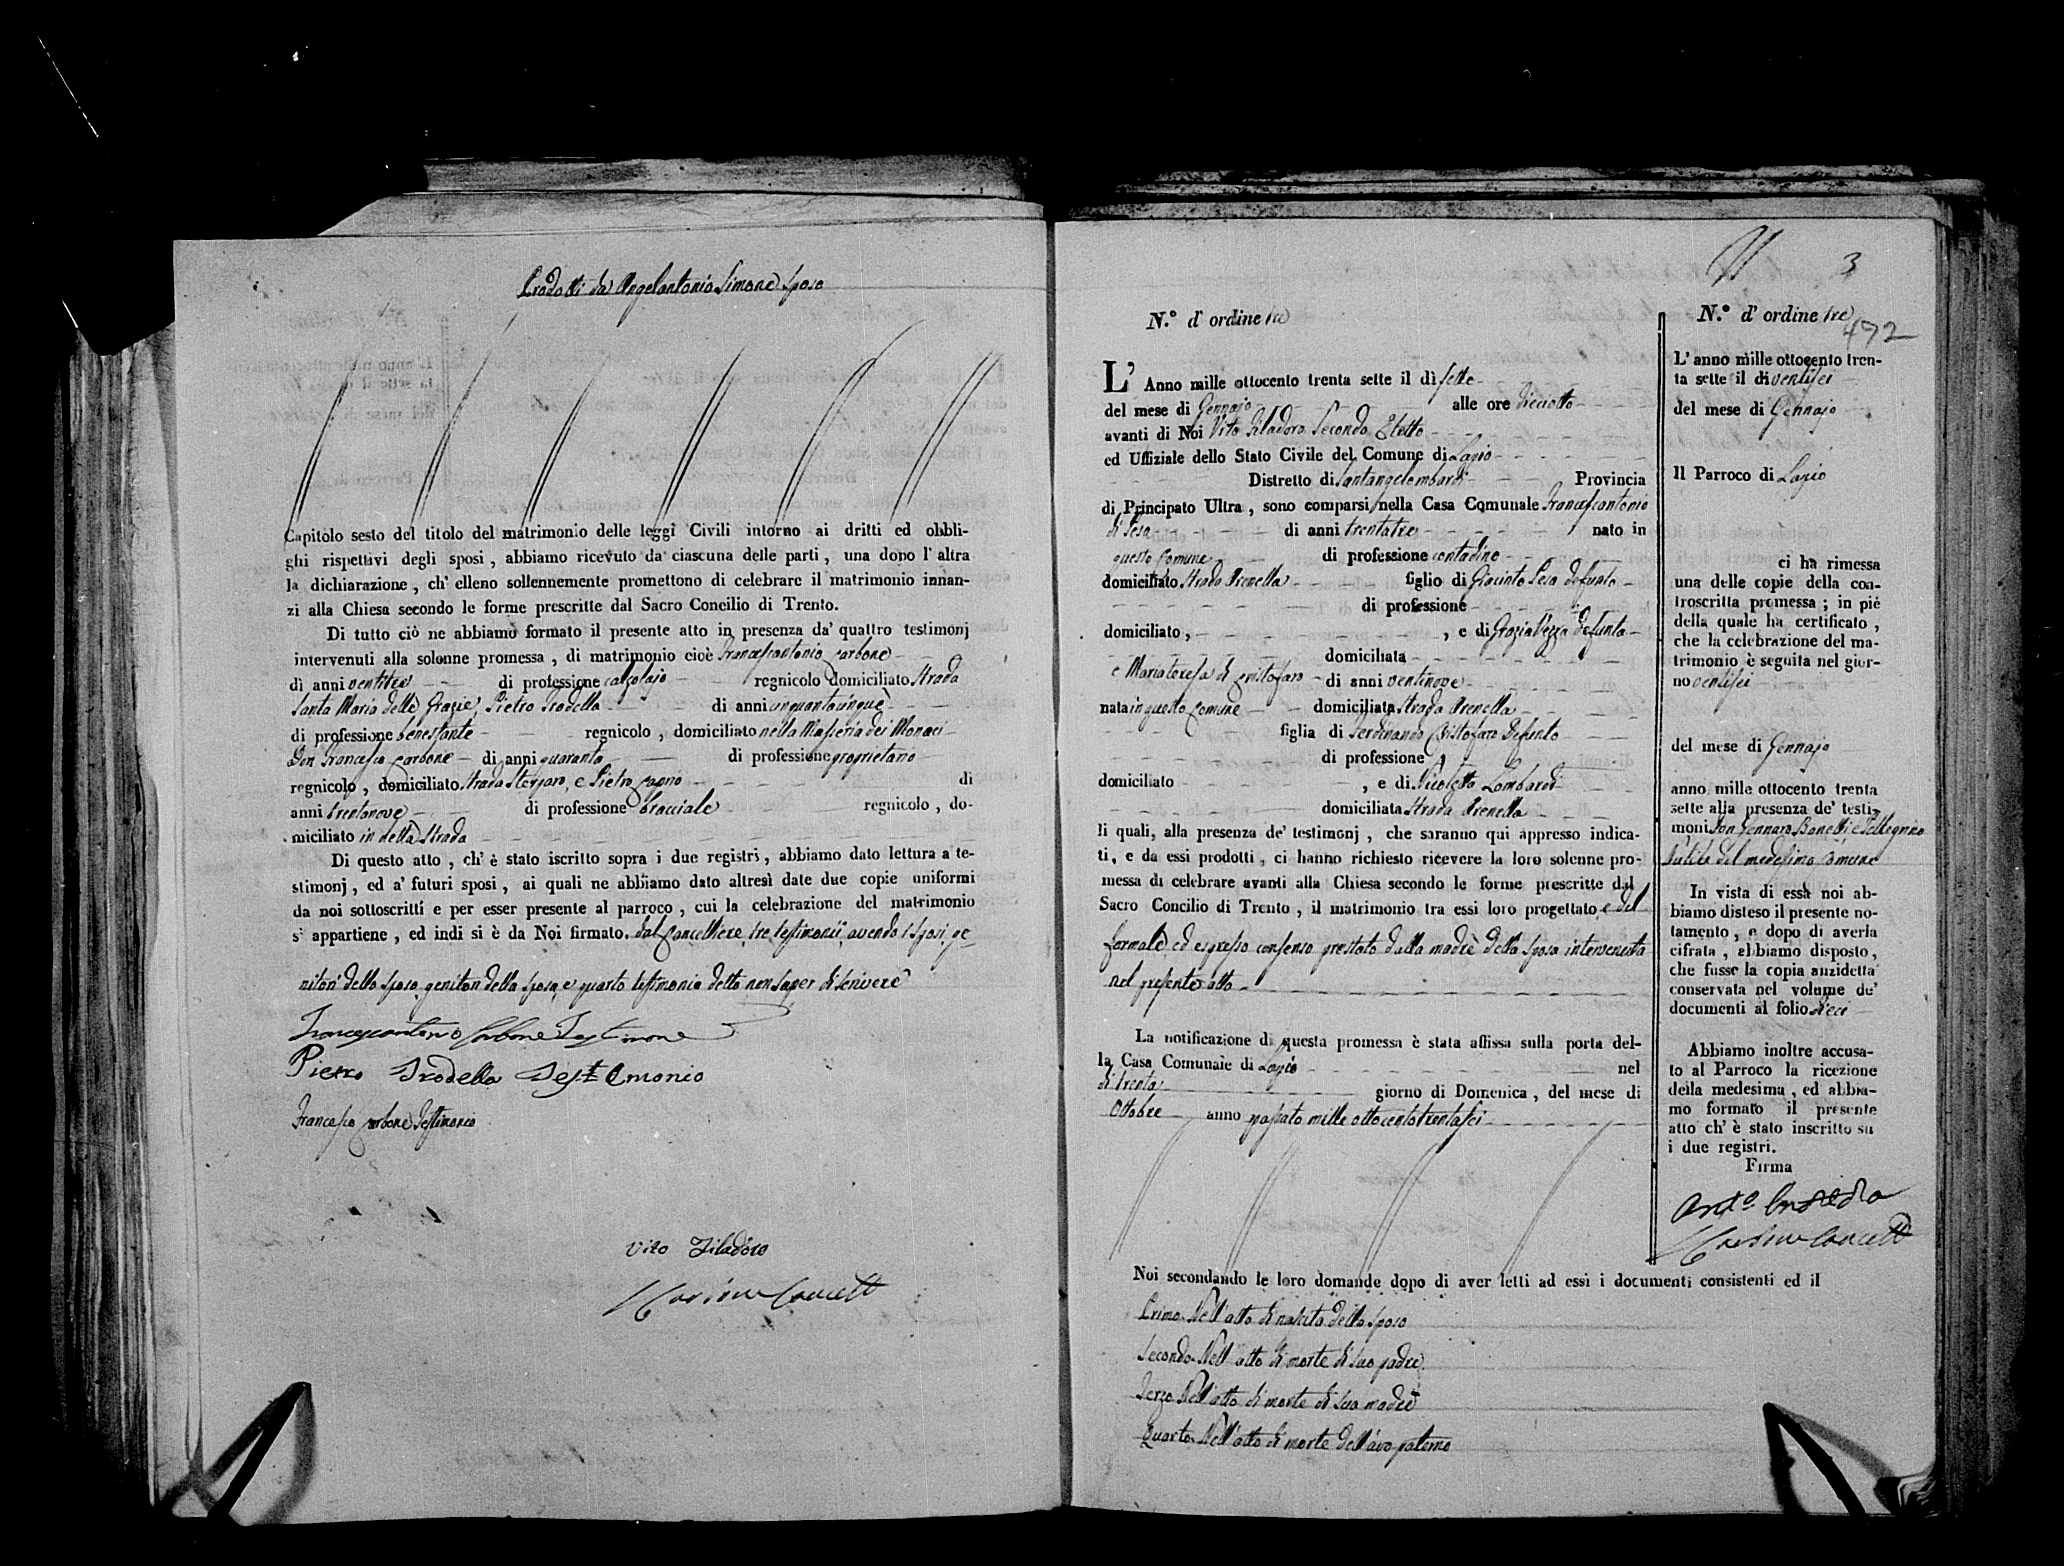 Prodotti da Angelantonio Simone sposo
Capitolo sesto del titolo del matrimonio delle leggi Civili intorno ai dritti ed obbli-
ghi rispettivi degli sposi, abbiamo ricevuto da ciascuna delle parti, una dopo l'altra
la dichiarazione, ch'elleno sollennemente promettono di celebrare il matrimonio innan-
zi alla Chiesa secondo le forme prescritte dal Sacro Concilio di Trento.
Di tutto ciò ne abbiamo formato il presente atto in presenza da' quattro testimonj
intervenuti alla solenne promessa, di matrimonio cioè Francescantonio Carbone
di anni ventitre di professione calzolajo regnicolo domiciliato Strada
Santa Maria delle Grazie, Pietro Frodella di anni cinquantacinque
di professione benestante regnicolo, domiciliato nella Masseria dei Monaci
Don Francesco Carbone di anni quaranta di professione proprietario
regnicolo, domiciliato Strada e Pietro di
anni trentanove di professione bracciale regnicolo, do-
miciliato in detta Strada
Di questo atto, ch'è stato iscritto sopra i due registri, abbiamo dato lettura a te-
stimonj, ed a' futuri sposi, ai quali ne abbiamo dato altresì date due copie uniformi
da noi sottoscritti e per esser presente al parroco, cui la celebrazione del matrimonio
s'appartiene, ed indi si è da Noi firmato, dal Cancelliere, tre testimonii, avendo i sposi, ge-
nitori dello sposo, genitori della sposa, e quarto testimonio detto non saper di scrivere
Francescantonio Carbone Testimone
Pietro Frodella Testimonio
Francesco Carbone Testimonio
Vito Filadoro
3
N.º d'ordine tre
L'Anno mille ottocento trenta sette il dì sette
del mese di Gennajo alle ore dieciotto
avanti di Noi Vito Filadoro Secondo Eletto
ed Uffiziale dello Stato Civile del Comune di Lagio
Distretto di Santangelombardi Provincia
di Principato Ultra, sono comparsi nella Casa Comunale Francescantonio
di Pesa di anni trentatre nato in
questo Comune di professione contadino
domiciliato Strada Arenella figlio di Giacinto Pesa defunto
di professione
domiciliato, , e di Grazia defunta
domiciliata
e Mariateresa di Cristofaro di anni ventinove
nata in questo Comune domiciliata Strada Arenella
figlia di Ferdinando Cristofaro Defunto
di professione,
domiciliato , e di Nicoletta Lombardi
domiciliata Strada Arenella
li quali, alla presenza de' testimonj, che saranno qui appresso indica-
ti, e da essi prodotti, ci hanno richiesto ricevere la loro solenne pro-
messa di celebrare avanti alla Chiesa secondo le forme prescritte dal
Sacro Concilio di Trento, il matrimonio tra essi loro progettato, e del
formale, ed espresso consenso prestato dalla madre della sposa intervenuta
nel presente atto
La notificazione di questa promessa è stata affissa sulla porta del-
la Casa Comunale di Lagio nel
di trenta giorno di Domenica, del mese di
Ottobre anno passato mille ottocentotrentasei
N.º d'ordine tre
472
L'anno mille ottocento tren-
ta sette il di ventisei
del mese di Gennajo
Il Parroco di Lagio
ci ha rimessa
una delle copie della con-
troscritta promessa; in piè
della quale ha certificato,
che la celebrazione del ma-
trimonio è seguita nel gior-
no ventisei
del mese di Gennajo
anno mille ottocento trenta
sette alla presenza de' testi-
moni Don Gennaro Bonelli e Pellegrino
del medesimo Comune
In vista di essa noi ab-
biamo disteso il presente no-
tamento, e dopo di averla
cifrata, abbiamo disposto,
che fusse la copia anzidetta
conservata nel volume de'
documenti al folio dieci
Abbiamo inoltre accusa-
to al Parroco la ricezione
della medesima, ed abbia-
mo formato il presente
atto ch'è stato inscritto su
i due registri.
Firma
Noi secondando le loro domande dopo di aver letti ad essi i documenti consistenti ed il
Primo Nell'atto di nascita dello sposo
Secondo Nell'atto di morte di suo padre
Terzo Nell'atto di morte di sua madre
Quarto Nell'atto di morte dell'avo paterno